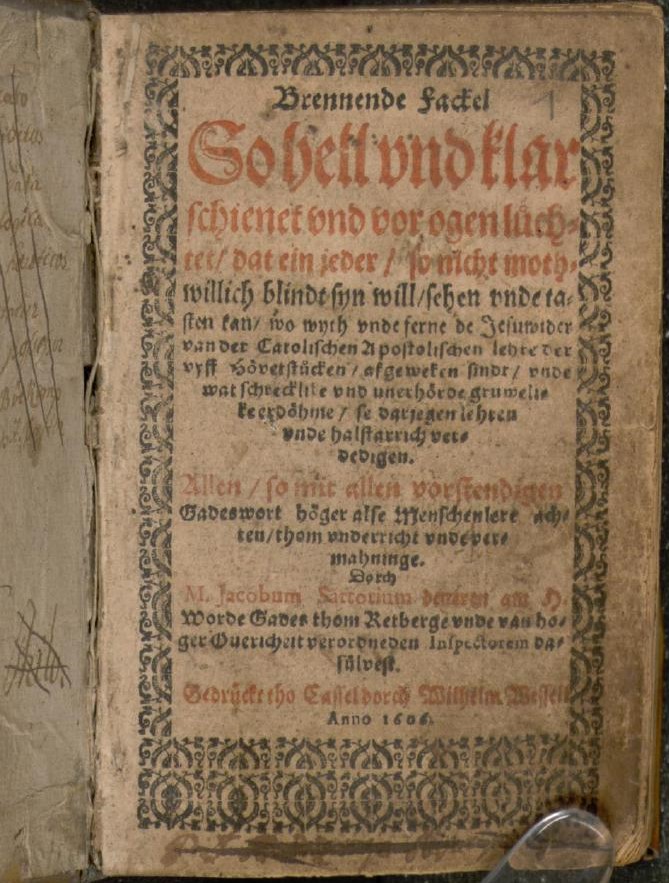 1
Brennende Fackel
So hell vnd klar
schienet vnd vor ogen lüch-
tet/ dat ein jeder/ so nicht moth-
willich blindt syn will/sehen vnde ta-
sten kan/ wo wyth vnde ferne de Jesuwider
van der Catolischen Apostolischen lehre der
vyff Hövetstücken/ afgeweken sindt/ vnde
wat schrecklike vnd unerhörde gruweli-
ke erdöhme/ se darjegen lehren
vnde halstarrich ver-
dedigen.
Allen/ so mit allen vorstendigen
Gadeswort höger alse Menschenlere ach-
ten/thom vnderricht vnde ver-
mahninge.
Dorch
M. Jacobum Sartorium deneren am H.
Worde Gades thom Retberge vnde van ho-
ger Overicheit verordneden Inspectorem da-
sülvest.
Gedrückt tho Cassel dorch Wilhelm Wessell
Anno 1606.